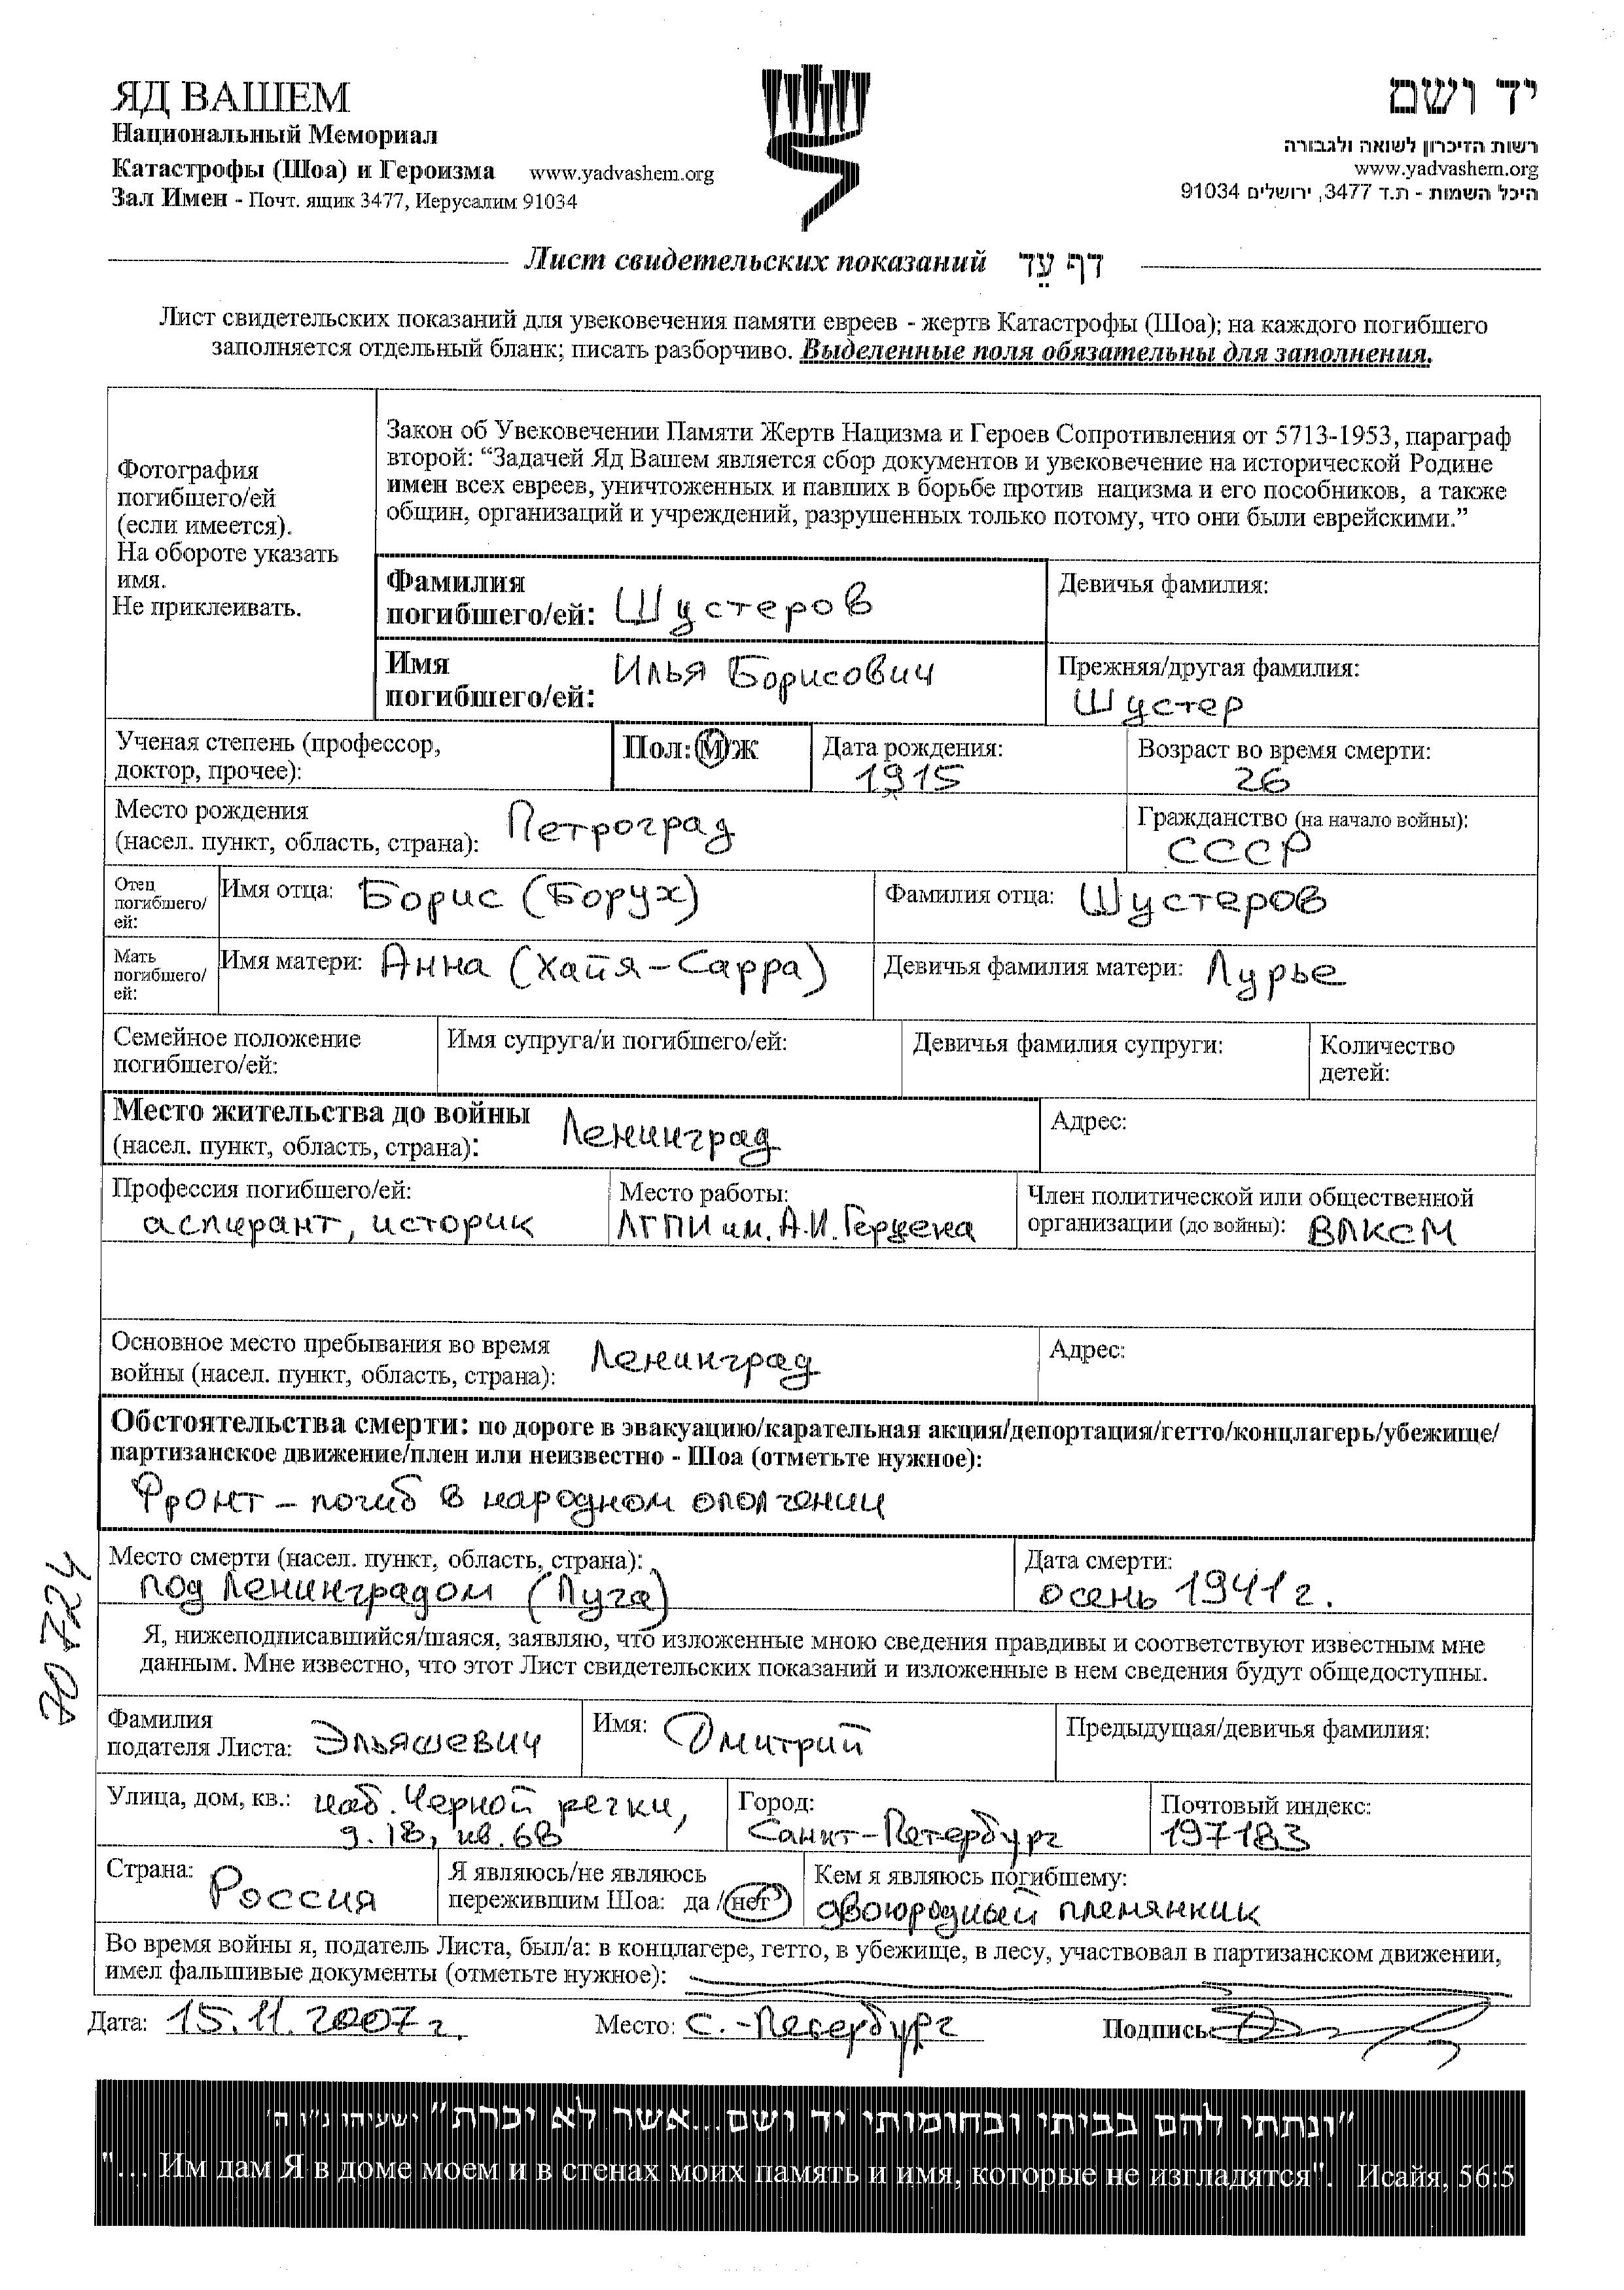 ЯД ВАШЕМ
Национальный Мемориал
Катастрофы (Шоа) и Героизма www.yadvashem.org
Зал Имен - Почт. ящик 3477, Иерусалим 91034
יד ושם
רשות הזיכרון לשואה ולגבורה
www.yadvashem.org
היכל השמות - ת.ד 3477, ירושלים 91034
Лист свидетельских показаний דף עֵד
Лист свидетельских показаний для увековечения памяти евреев - жертв Катастрофы (Шоа); на каждого погибшего
заполняется отдельный бланк; писать разборчиво. Выделенные поля обязательны для заполнения.
Фотография
погибшего/ей
(если имеется).
На обороте указать
имя.
Не приклеивать.
Закон об Увековечении Памяти Жертв Нацизма и Героев Сопротивления от 5713-1953, параграф
второй: “Задачей Яд Вашем является сбор документов и увековечение на исторической Родине
имен всех евреев, уничтоженных и павших в борьбе против нацизма и его пособников, а также
общин, организаций и учреждений, разрушенных только потому, что они были еврейскими.”
Фамилия
погибшего/ей: Шустеров
Девичья фамилия:
Имя
погибшего/ей: Илья Борисович
Прежняя/другая фамилия:
Шустер
Ученая степень (профессор,
доктор, прочее):
Пол: М/Ж
Дата рождения:
1915
Возраст во время смерти:
26
Место рождения
(насел. пункт, область, страна): Петроград
Гражданство (на начало войны):
СССР
Отец
погибшего/
ей:
Имя отца: Борис (Борух)
Фамилия отца: Шустеров
Мать
погибшего/
ей:
Имя матери: Анна (Хайя-Сарра)
Девичья фамилия матери: Лурье
Семейное положение
погибшего/ей:
Имя супруга/и погибшего/ей:
Девичья фамилия супруги:
Количество
детей:
Место жительства до войны
(насел. пункт, область, страна): Ленинград
Адрес:
Профессия погибшего/ей:
аспирант, историк
Место работы:
ЛГПИ им. А.И. Герцена
Член политической или общественной
организации (до войны): ВЛКСМ
Основное место пребывания во время
войны (насел. пункт, область, страна): Ленинград
Адрес:
Обстоятельства смерти: по дороге в эвакуацию/карательная акция/депортация/гетто/концлагерь/убежище/
партизанское движение/плен или неизвестно - Шоа (отметьте нужное):
Фронт - погиб в народном ополчении
Место смерти (насел. пункт, область, страна):
под Ленинградом (Луга)
Дата смерти:
осень 1941 г.
70724
Я, нижеподписавшийся/шаяся, заявляю, что изложенные мною сведения правдивы и соответствуют известным мне
данным. Мне известно, что этот Лист свидетельских показаний и изложенные в нем сведения будут общедоступны.
Фамилия
подателя Листа: Эльяшевич
Имя: Дмитрий
Предыдущая/девичья фамилия:
Улица, дом, кв.: наб. Черной речки,
д. 18, кв. 68
Город:
Санкт-Петербург
Почтовый индекс:
197183
Страна: Россия
Я являюсь/не являюсь
пережившим Шоа: да /нет
Кем я являюсь погибшему:
двоюродный племянник
Во время войны я, податель Листа, был/а: в концлагере, гетто, в убежище, в лесу, участвовал в партизанском движении,
имел фальшивые документы (отметьте нужное):
Дата: 15.11.2007 г.
Место: С.-Петербург
Подпись:
"ונתתי להם בביתי ובחומותי יד ושם...אשר לא יכרת" ישעיהו נ"ו ה'
"... Им дам Я в доме моем и в стенах моих память и имя, которые не изгладятся". Исайя, 56:5